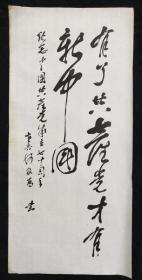 有了共产党才有
新中国
纪念中国共产党诞生七十周年